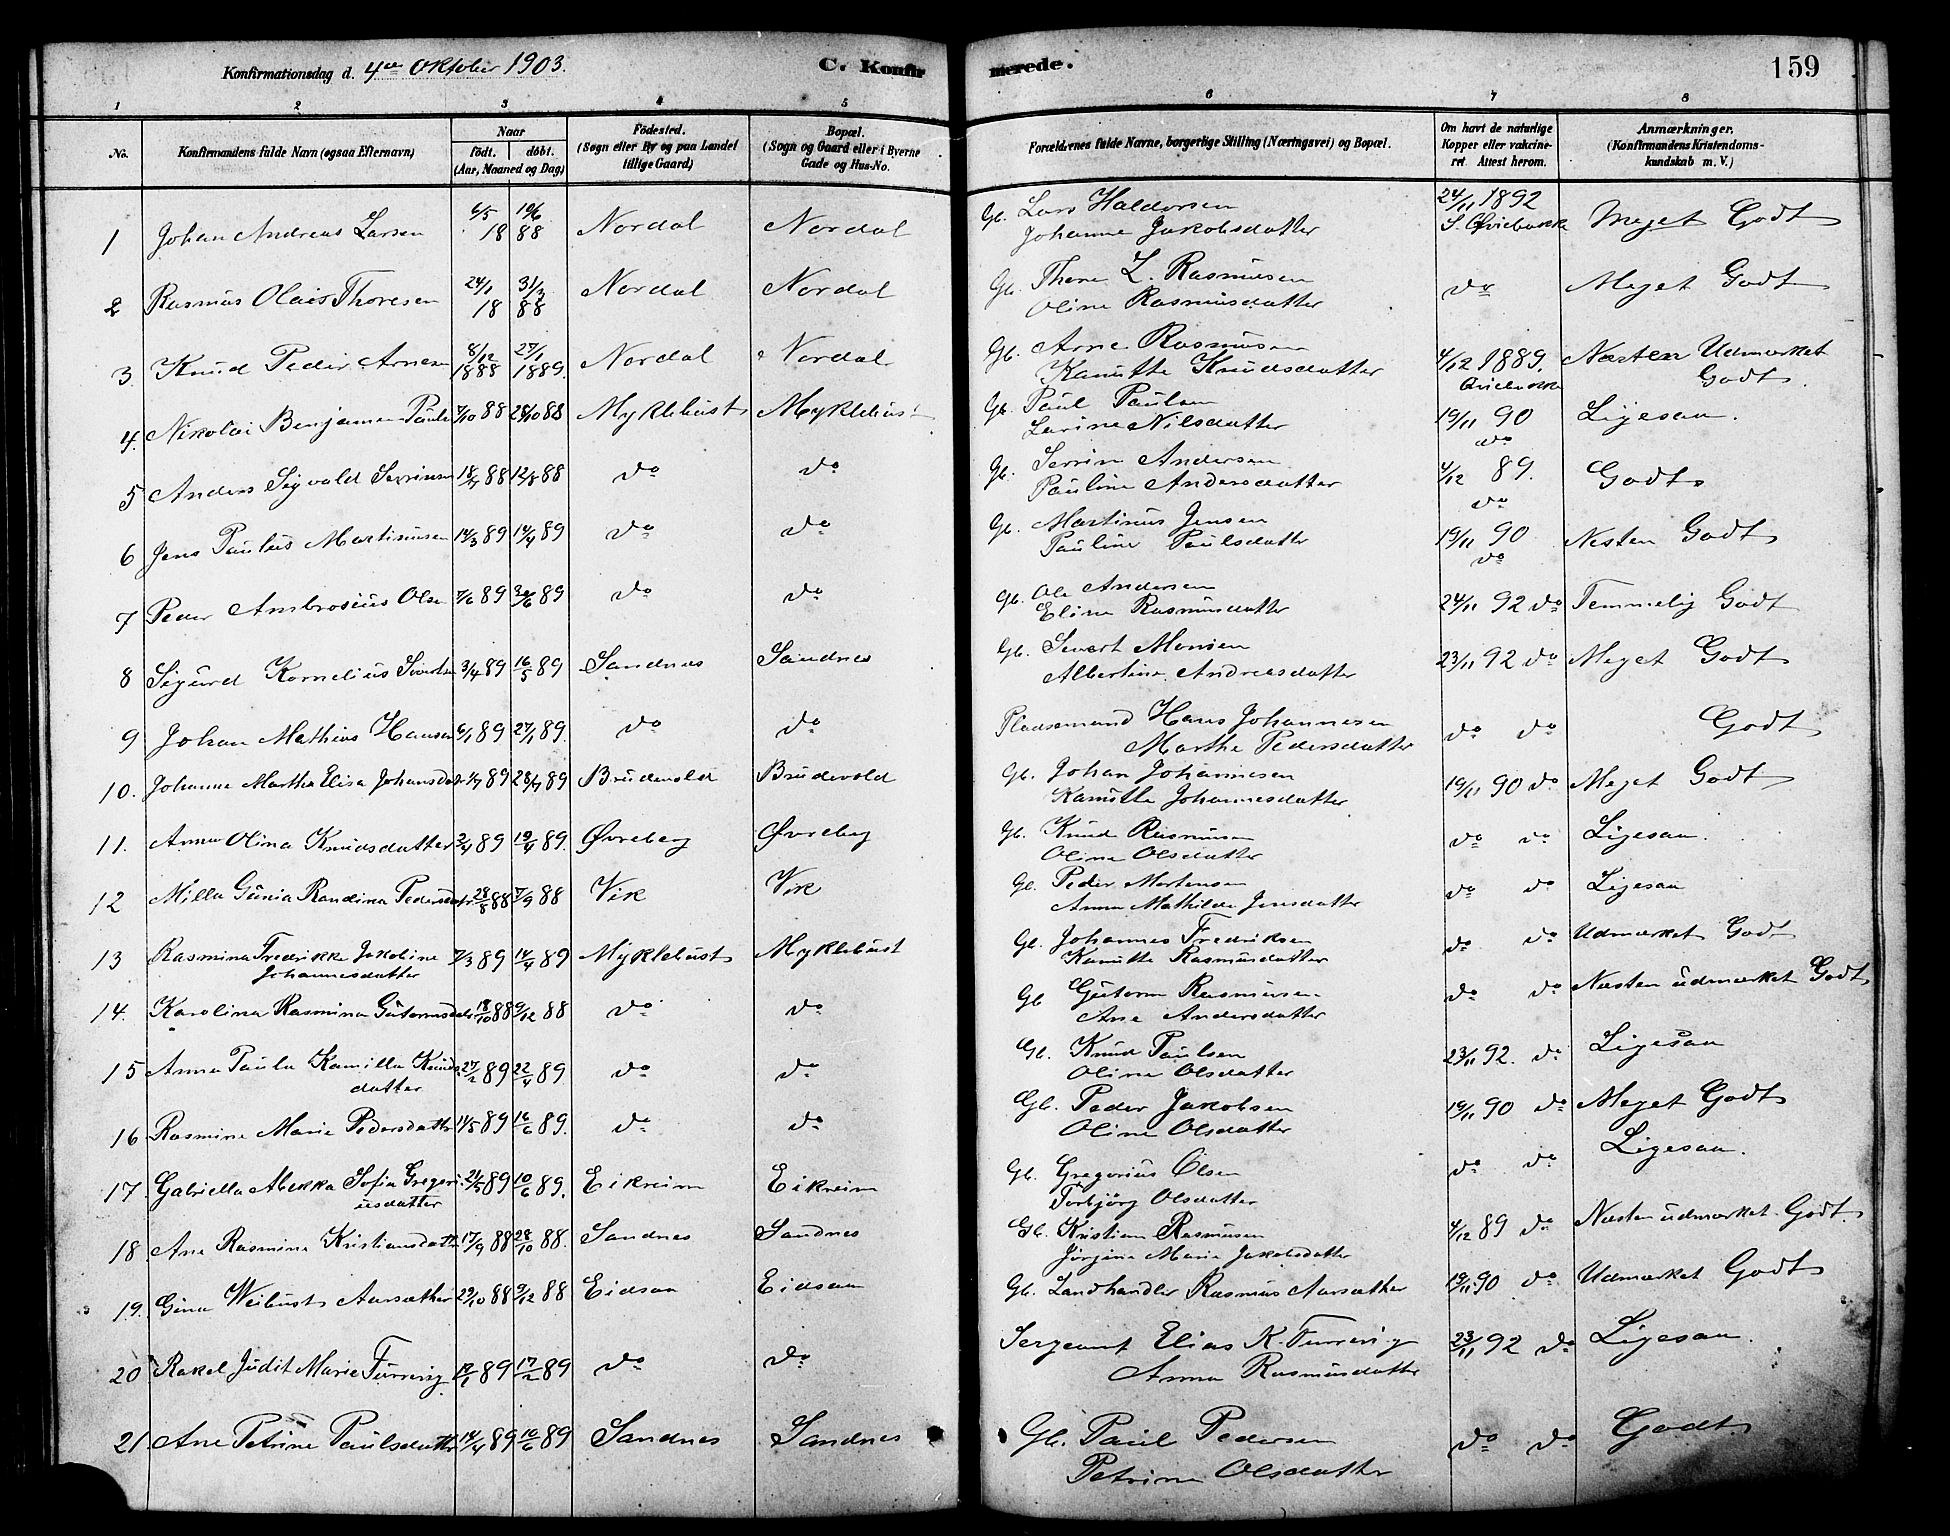 Konfirmationsdag d. 4de Oktober 1903.
C. Konfirmerede.
159
1 2 3 4 5 6 7 8
No.
Konfirmandens fulde Navn (ogsaa Efternavn)
Naar
født. døbt.
(Aar, Maaned og Dag)
Fødested.
(Sogn eller By og paa Landet
tillige Gaard)
Bopæl.
(Sogn og Gaard eller i Byerne
Gade og Hus-No.
Forældrenes fulde Navne, borgerlige Stilling (Næringsvei) og Bopæl.
Om havt de naturlige
Kopper eller vakcine-
ret. Attest herom.
Anmærkninger.
(Konfirmandens Kristendoms-
kundskab m. V.)
1 Johan Andreas Larsen 6/5 10/6 18 88 Nordal Nordal Gb. Lars Haldorsen
Johanne Jakobsdatter 24/11 1892 Meget Godt
2 Rasmus Olais Thoresen 24/1 31/3 18 88 Nordal Nordal Gb. Thore L. Rasmusen
Oline Rasmusdatter do Meget Godt
3 Knud Peder Arnesen 8/12 1888 27/1 1889. Nordal Nordal Gb. Arne Rasmusen
Kanutte Knudsdatter 4/12 1889. Næsten Udmærket
Godt.
4. Nikolai Benjamin 7/10 88 28/10 88 Myklebust Myklebust Gb. Paul Paulsen
Larine Nilsdatter 19/11 90 do Ligesaa.
5 Anders Sigvald 18/7 88 12/8 88 do do Gb. Andersen
Pauline Andersdatter 4/12 89. do Godt
6 Jens Paulus Martinusen 14/3 89 14/4 89 do do Gb. Martinus Jensen
Pauline Paulsdatter 19/11 90 do Nesten Godt
7 Peder Ambrosius Olsen 7/6 89 30/6 89 do do Gb. Ole Andersen
Eline Rasmusdatter 24/11 92 do Temmelig Godt
8 Sigurd Kornelius 3/4 89 16/5 89 Sandnes Sandnes Gb. Sivert Monsen
Albertine Andreasdatter 23/11 92 do Meget Godt
9 Johan Mathias Hansen 6/1 89 27/1 89. do do Pladsemand Hans Johannesen
Marthe Pedersdatter do do Godt
10. Johanne Martha Elisa Johansdatr 1/7 89 28/7 89 Brudevold Brudevold Gb. Johan Johannesen
Kanutte Johannesdatter 19/11 90 do Meget Godt
11. Anna Olina Knudsdatter 3/4 89 19/4 89. Øvreberg Øvreberg Gb. Knud Rasmusen
Oline Olsdatter do do Ligesaa.
12 Milla Gunia Randina Pedersdatr 28/8 88 9/9 88 Vik Vik Gb. Peder Mortensen
Anna Mathilde Jensdatter do do Ligesaa
13 Rasmina Fredrikke Jakoline
Johannesdatter 7/3 89 14/4 89 Myklebust Myklebust Gb. Johannes Fredriksen
Kanutte Rasmusdatter do do Udmærket Godt
14. Karolina Rasmina Gutormsdatr 18/10 88 9/12 88 do do Gb Gutorm Rasmusen
Ane Andersdatter do do Næsten udmærket Godt,
15 Anna Paula Kamilla Knuds
datter 27/2 89 22/4 89 do do Gb. Knud Paulsen
Oline Olsdatter 23/11 92. do Ligesaa
16 Rasmine Marie Pedersdatter 11/5 89 16/6 89. do do Gb. Peder Jakobsen
Oline Olsdatter 19/11 90 do Meget Godt
17. Gabriella Alekka Sofia Gregori
usdatter 21/5 89 10/6 89. Eikreim Eikreim Gb. Gregorius Olsen
Torbjørg Olsdatter do do Ligesaa.
18. Ane Rasmine Kristiansdatter 17/9 88 28/10 88. Sandnes Sandnes Gb. Kristian Rasmusen
Jørgine Marie Jakobsdatter 4/12 89 do Næsten udmærket Godt.
19. Gina Weibust Aarsæther 29/10 88 9/12 88 Eidsaa Eidsaa Gb. Landhandler Rasmus Aarsæther 19/11 90 do Udmærket Godt
20 Rakel Judit Marie Furring 12/1 89 17/2 89 do do Sergeant Elias K. Furring
Anna Rasmusdatter 23/11 92 do Ligesaa.
21 Ane Petrine Paulsdatter 14/4 89 10/6 89 Sandnes Sandnes Gb. Paul Pedersen
Petrine Olsdatter do do Godt.